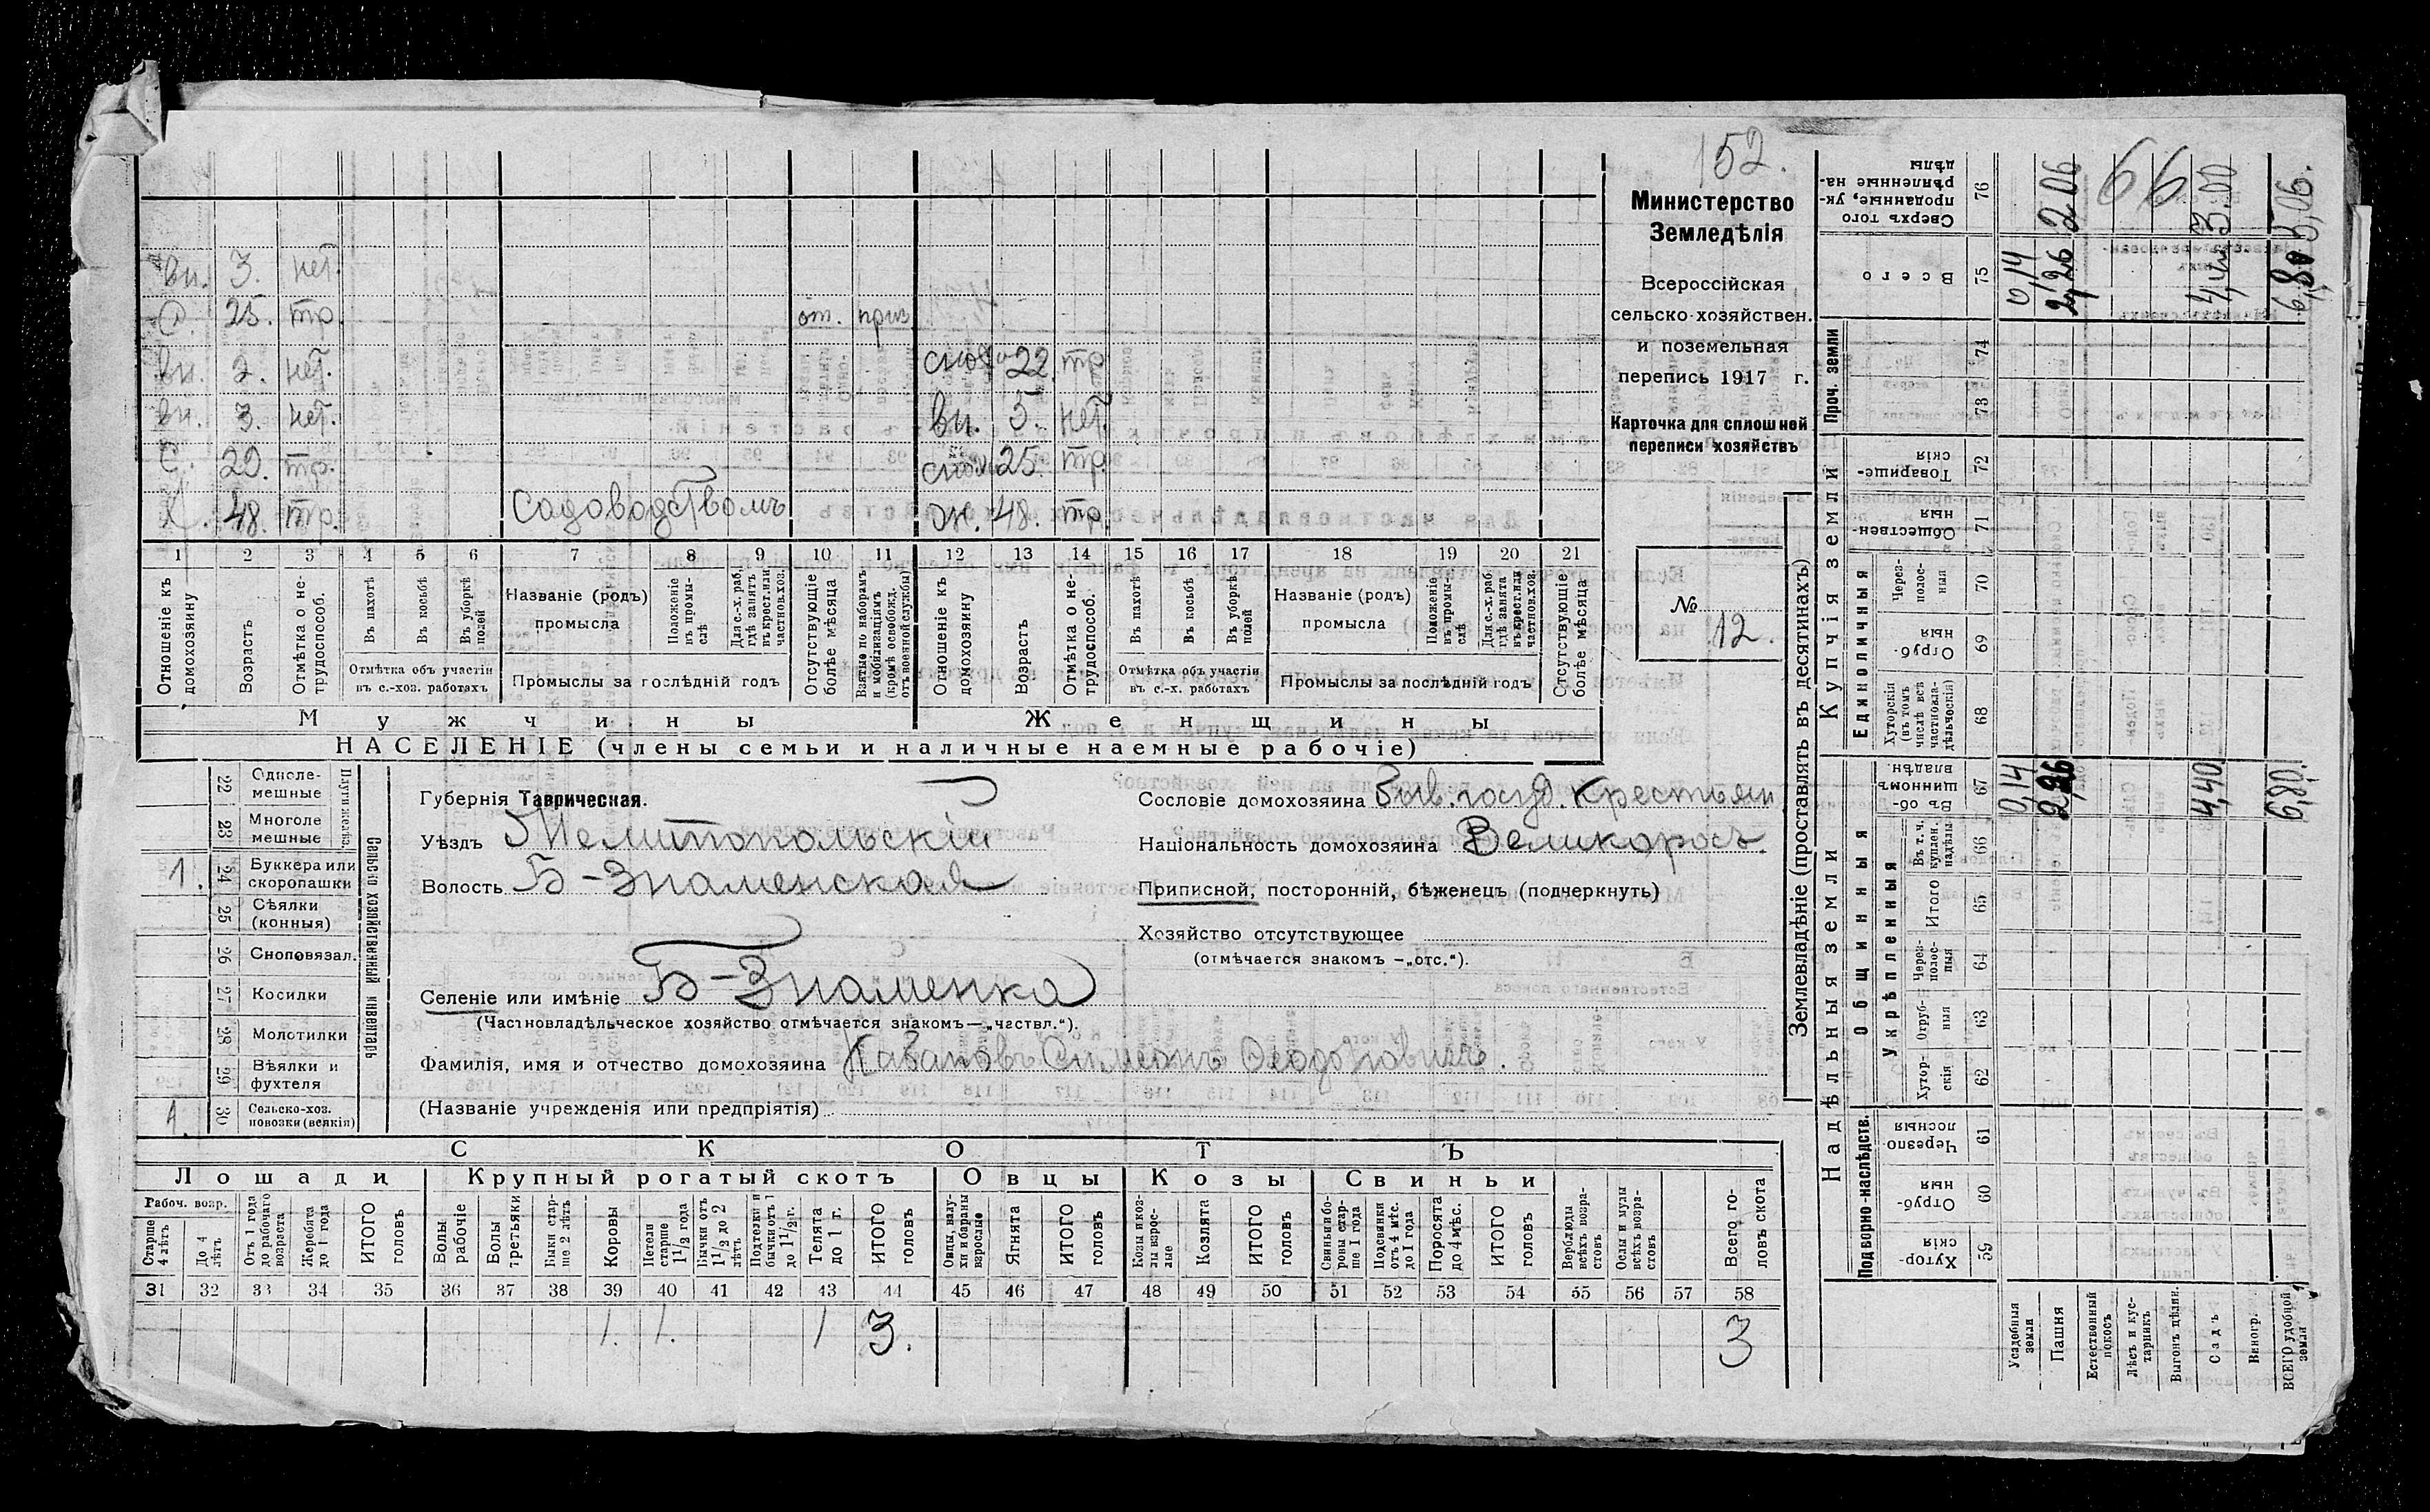 152.
Министерство
Земледѣлія
Всероссійская
сельско-хозяйствен.
и поземельная
перепись 1917 г.
Карточка для сплошной
переписи хозяйствъ
№
12.
вн. 3. нет.
С. 25. тр. от. приз.
вн. 2. нет. сноха 22 тр.
вн. 3. нет. вн. 5. нет.
С. 20. тр. сноха 25. тр.
Х. 48. тр. Садоводствомъ ж. 48. тр.
1 2 3 4 5 6 7 8 9 10 11 12 13 14 15 16 17 18 19 20 21
Отношеніе къ домохозяину
Возрастъ
Отмѣтка о не-трудоспособ.
Въ пахотѣ
Въ косьбѣ
Въ уборкѣ полей
Отмѣтка объ участіи въ с.-хоз. работахъ
Названіе (родъ) промысла
Положеніе въ промы-слѣ
Для с.-х. раб. гдѣ занятъ въ крест. или частнов. хоз.
Промыслы за послѣдній годъ
Отсутствующіе болѣе мѣсяца
Взятые по наборамъ и мобилизаціямъ (кромѣ освобожд. отъ военной службы)
Отношеніе къ домохозяину
Возрастъ
Отмѣтка о не-трудоспособ.
Въ пахотѣ
Въ косьбѣ
Въ уборкѣ полей
Отмѣтка объ участіи въ с.-х. работахъ
Названіе (родъ) промысла
Положеніе въ промы-слѣ
Для с.-х. раб. гдѣ занята въ крест. или частнов. хоз.
Промыслы за послѣдній годъ
Отсутствующіе болѣе мѣсяца
Мужчины Женщины
НАСЕЛЕНІЕ (члены семьи и наличные наемные рабочіе)
Сельско хозяйственный инвентарь
22 Одноле-мешные
23 Многоле мешные
1. 24 Буккера или скоропашки
25 Сѣялки (конныя)
26 Сноповязал.
27 Косилки
28 Молотилки
29 Вѣялки и фухтеля
1. 30 Сельско-хоз. повозки (всякія)
Губернія Таврическая.
Уѣздъ Мелитопольскій
Волость Б-Знаменская
Селеніе или имѣніе Б-Знаменка
(Частновладѣльческое хозяйство отмѣчается знакомъ—„частвл.“).
Фамилія, имя и отчество домохозяина Симеонъ
(Названіе учрежденія или предпріятія)
Сословіе домохозяина Быв. госуд. крестьян
Національность домохозяина Великоросъ.
Приписной, посторонній, бѣженецъ (подчеркнуть)
Хозяйство отсутствующее
(отмѣчается знакомъ —„отс.“).
СКОТЪ
Лошади Крупный рогатый скотъ Овцы Козы Свиньи
Рабоч. возр.
Старше 4 лѣтъ
До 4 лѣтъ
Отъ 1 года до рабочаго возраста
Жеребята до 1 года
ИТОГО головъ
Волы рабочіе
Волы третьяки
Быки стар-ше 2 лѣтъ
Коровы
Нетели старше 1 1/2 года
Бычки отъ 1 1/2 до 2 лѣтъ
Подтелки и бычки отъ 1 до 1 1/2 г.
Телята до 1 г.
ИТОГО головъ
Овцы, валу-хи и бараны взрослые
Ягнята
ИТОГО головъ
Козы и коз-лы взрос-лые
Козлята
ИТОГО головъ
Свиньи и бо-ровы стар-ше 1 года
Подсвинки отъ 4 мѣс. до 1 года
Поросята до 4 мѣс.
ИТОГО головъ
Верблюды всѣхъ возра-стовъ
Ослы и мулы всѣхъ возра-стовъ
Всего го-ловъ скота
31 32 33 34 35 36 37 38 39 40 41 42 43 44 45 46 47 48 49 50 51 52 53 54 55 56 57 58
1. 1. 1 3. 3
Землевладѣніе (проставлять въ десятинахъ)
Надѣльныя земли Купчія земли Проч. земли
Подворно-наслѣдств. Общинныя Единоличныя
Укрѣпленныя
Хутор-скія 59
Отруб-ныя 60
Черезпо-лосныя 61
Хутор-скія 62
Отруб-ныя 63
Через-полос-ныя 64
Итого 65
Въ т. ч. куплен. надѣлы 66
Въ об-щинномъ владѣн. 67
Хуторскія (въ томъ числѣ всѣ частновла-дѣльческія) 68
Отруб-ныя 69
Через-полос-ныя 70
Обществен-ныя 71
Товарище-скія 72
73
74
Всего 75
Сверхъ того проданные, ук-рѣпленные на-дѣлы 76
Усадебныя земли 0,14 0,14
Пашня 2,26 2,26 2 06
Естественный покосъ
Лѣсъ и кус-тарникъ
Выгонъ цѣлин.
Садъ 4,40 4,40 3,00
Виногр.
ВСЕГО удобной земли 6,80 6,80 5,06.
66